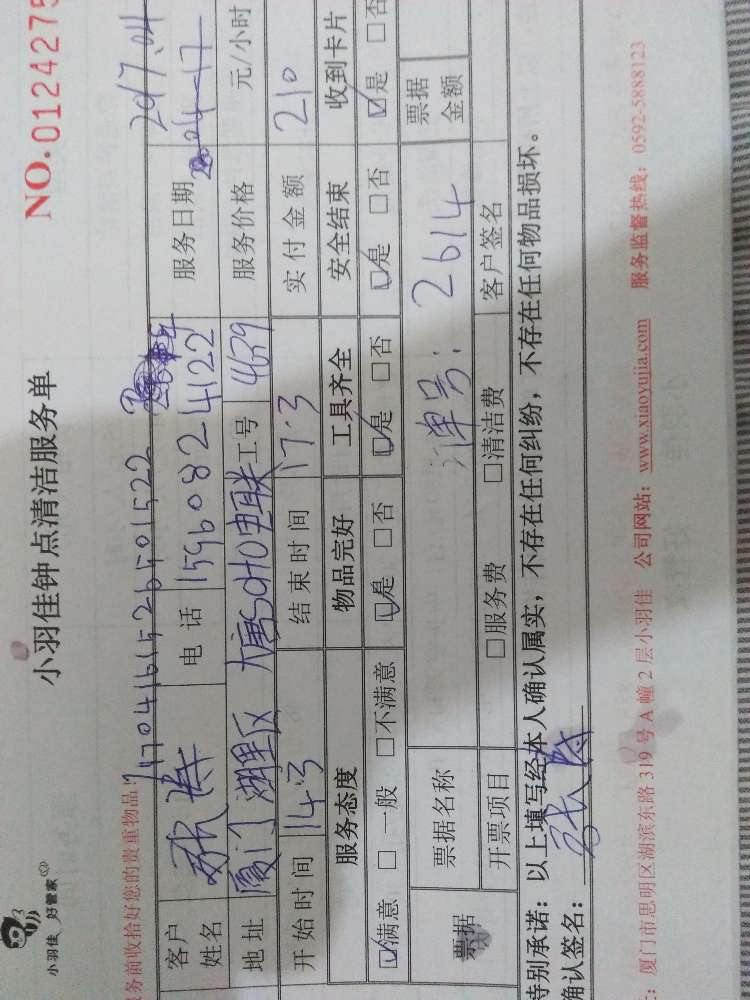 小羽佳 好管家
小羽佳钟点清洁服务单
NO.0124275
务前收拾好您的贵重物品!
客户姓名 电话 15960824122 服务日期 2017.04
地址 厦门湖里区 大唐 工号 4639 服务价格 元/小时
开始时间 14:3 结束时间 17:3 实付金额 210
服务态度 物品完好 工具齐全 安全结束 收到卡片
☑满意 □一般 □不满意 ☑是 □否 ☑是 □否 ☑是 □否 ☑是 □否
票据 票据名称 单号: 2614 票据金额
开票项目 □服务费 □清洁费 客户签名
特别承诺:以上填写经本人确认属实,不存在任何纠纷,不存在任何物品损坏。
确认签名:
:厦门市思明区湖滨东路 319 号 A 幢 2 层小羽佳 公司网站:www.xiaoyujia.com 服务监督热线:0592-5888123